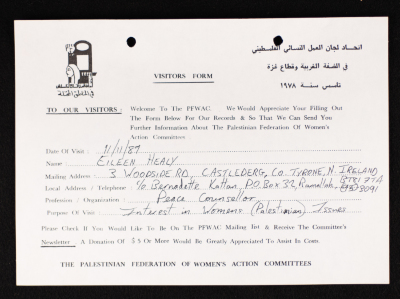 اتحاد لجان العمل النسائي الفلسطيني
في الضفة الغربية وقطاع غزة
تأسس سنة ١٩٧٨
VISITORS FORM
TO OUR VISITORS : Welcome To The PFWAC. We Would Appreciate Your Filling Out
The Form Below For Our Records & So That We Can Send You
Further Information About The Palestinian Federation Of Women's
Action Committees :
Date Of Visit : 11/11/89
Name : EILEEN HEALY
Mailing Address : 3 WOODSIDE RD, CASTLEDERG, CO. TYRONE, N. IRELAND
BT81 7TA
Local Address / Telephone : c/o Bernadette Kattan, P.O. Box 32, Ramallah,
Profession / Organization : Peace Counsellor
Purpose Of Visit : Interest in Womens (Palestinian) Issues
Please Check If You Would Like To Be On The PFWAC Mailing list & Receive The Committee's
Newsletter A Donation Of 5 $ Or More Would Be Greatly Appreciated To Assist In Costs
THE PALESTINIAN FEDERATION OF WOMEN'S ACTION COMMITTEES